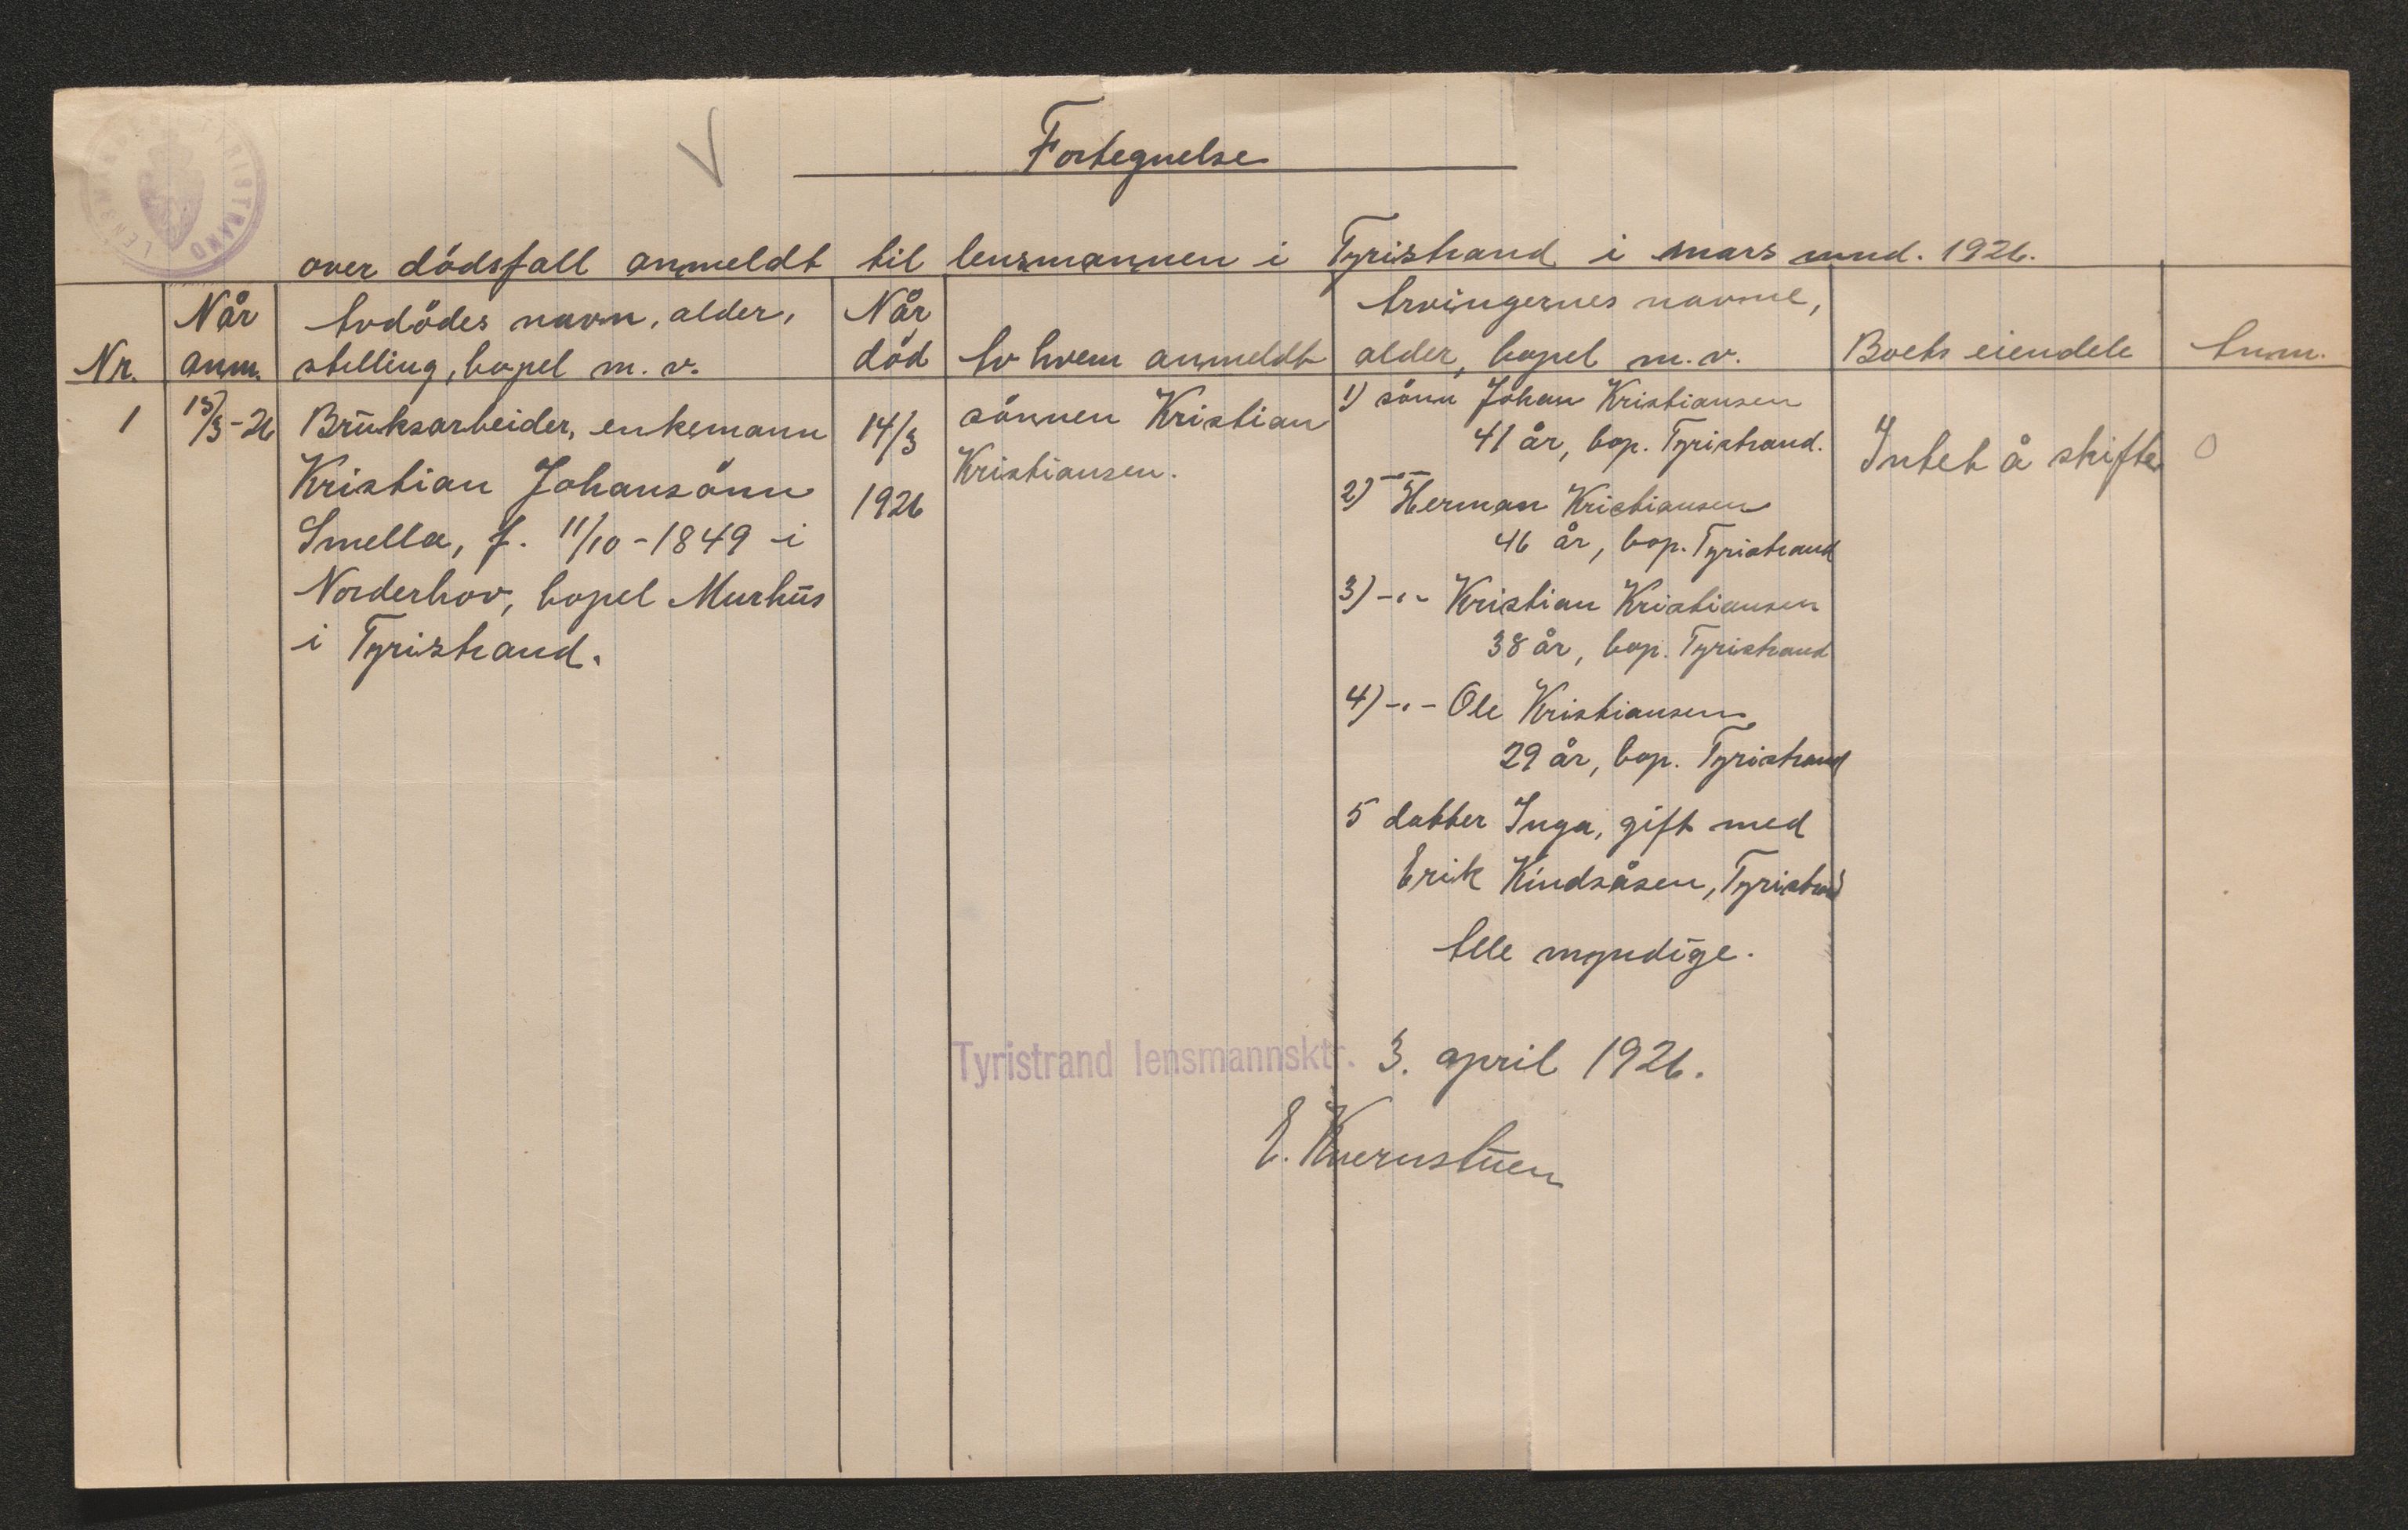 LENSMANDEN I TYRISTRAND
Fortegnelse
over dödsfall anmeldt til lensmannen i Tyristrand i mars mnd. 1926.
Nr.
Når
anm.
Avdödes navn, alder,
stilling, bopel m. v.
Når
död
Av hvem anmeldt
Arvingernes navne,
alder, bopel m. v.
Boets eiendele
Anm.
1
15/3-26
Brüksarbeider, enkemann
Kristian Johansönn
Smella, f. 11/10-1849 i
Norderhov, bopel Murhüs
i Tyristrand.
14/3
1926
sönnen Kristian
Kristiansen.
1) sönn Johan Kristiansen
41 år, bop. Tyristrand.
2) -"- Herman Kristiansen
46 år, bop. Tyristrand
3) -"- Kristian Kristiansen
38 år, bop. Tyristrand
4) -"- Ole Kristiansen
29 år, bop. Tyristrand
5 datter Inga, gift med
Erik Kindsåsen, Tyristrand
Alle myndige.
Intet å skifte
0
Tyristrand lensmannsktr. 3. april 1926.
E. Kvernstüen